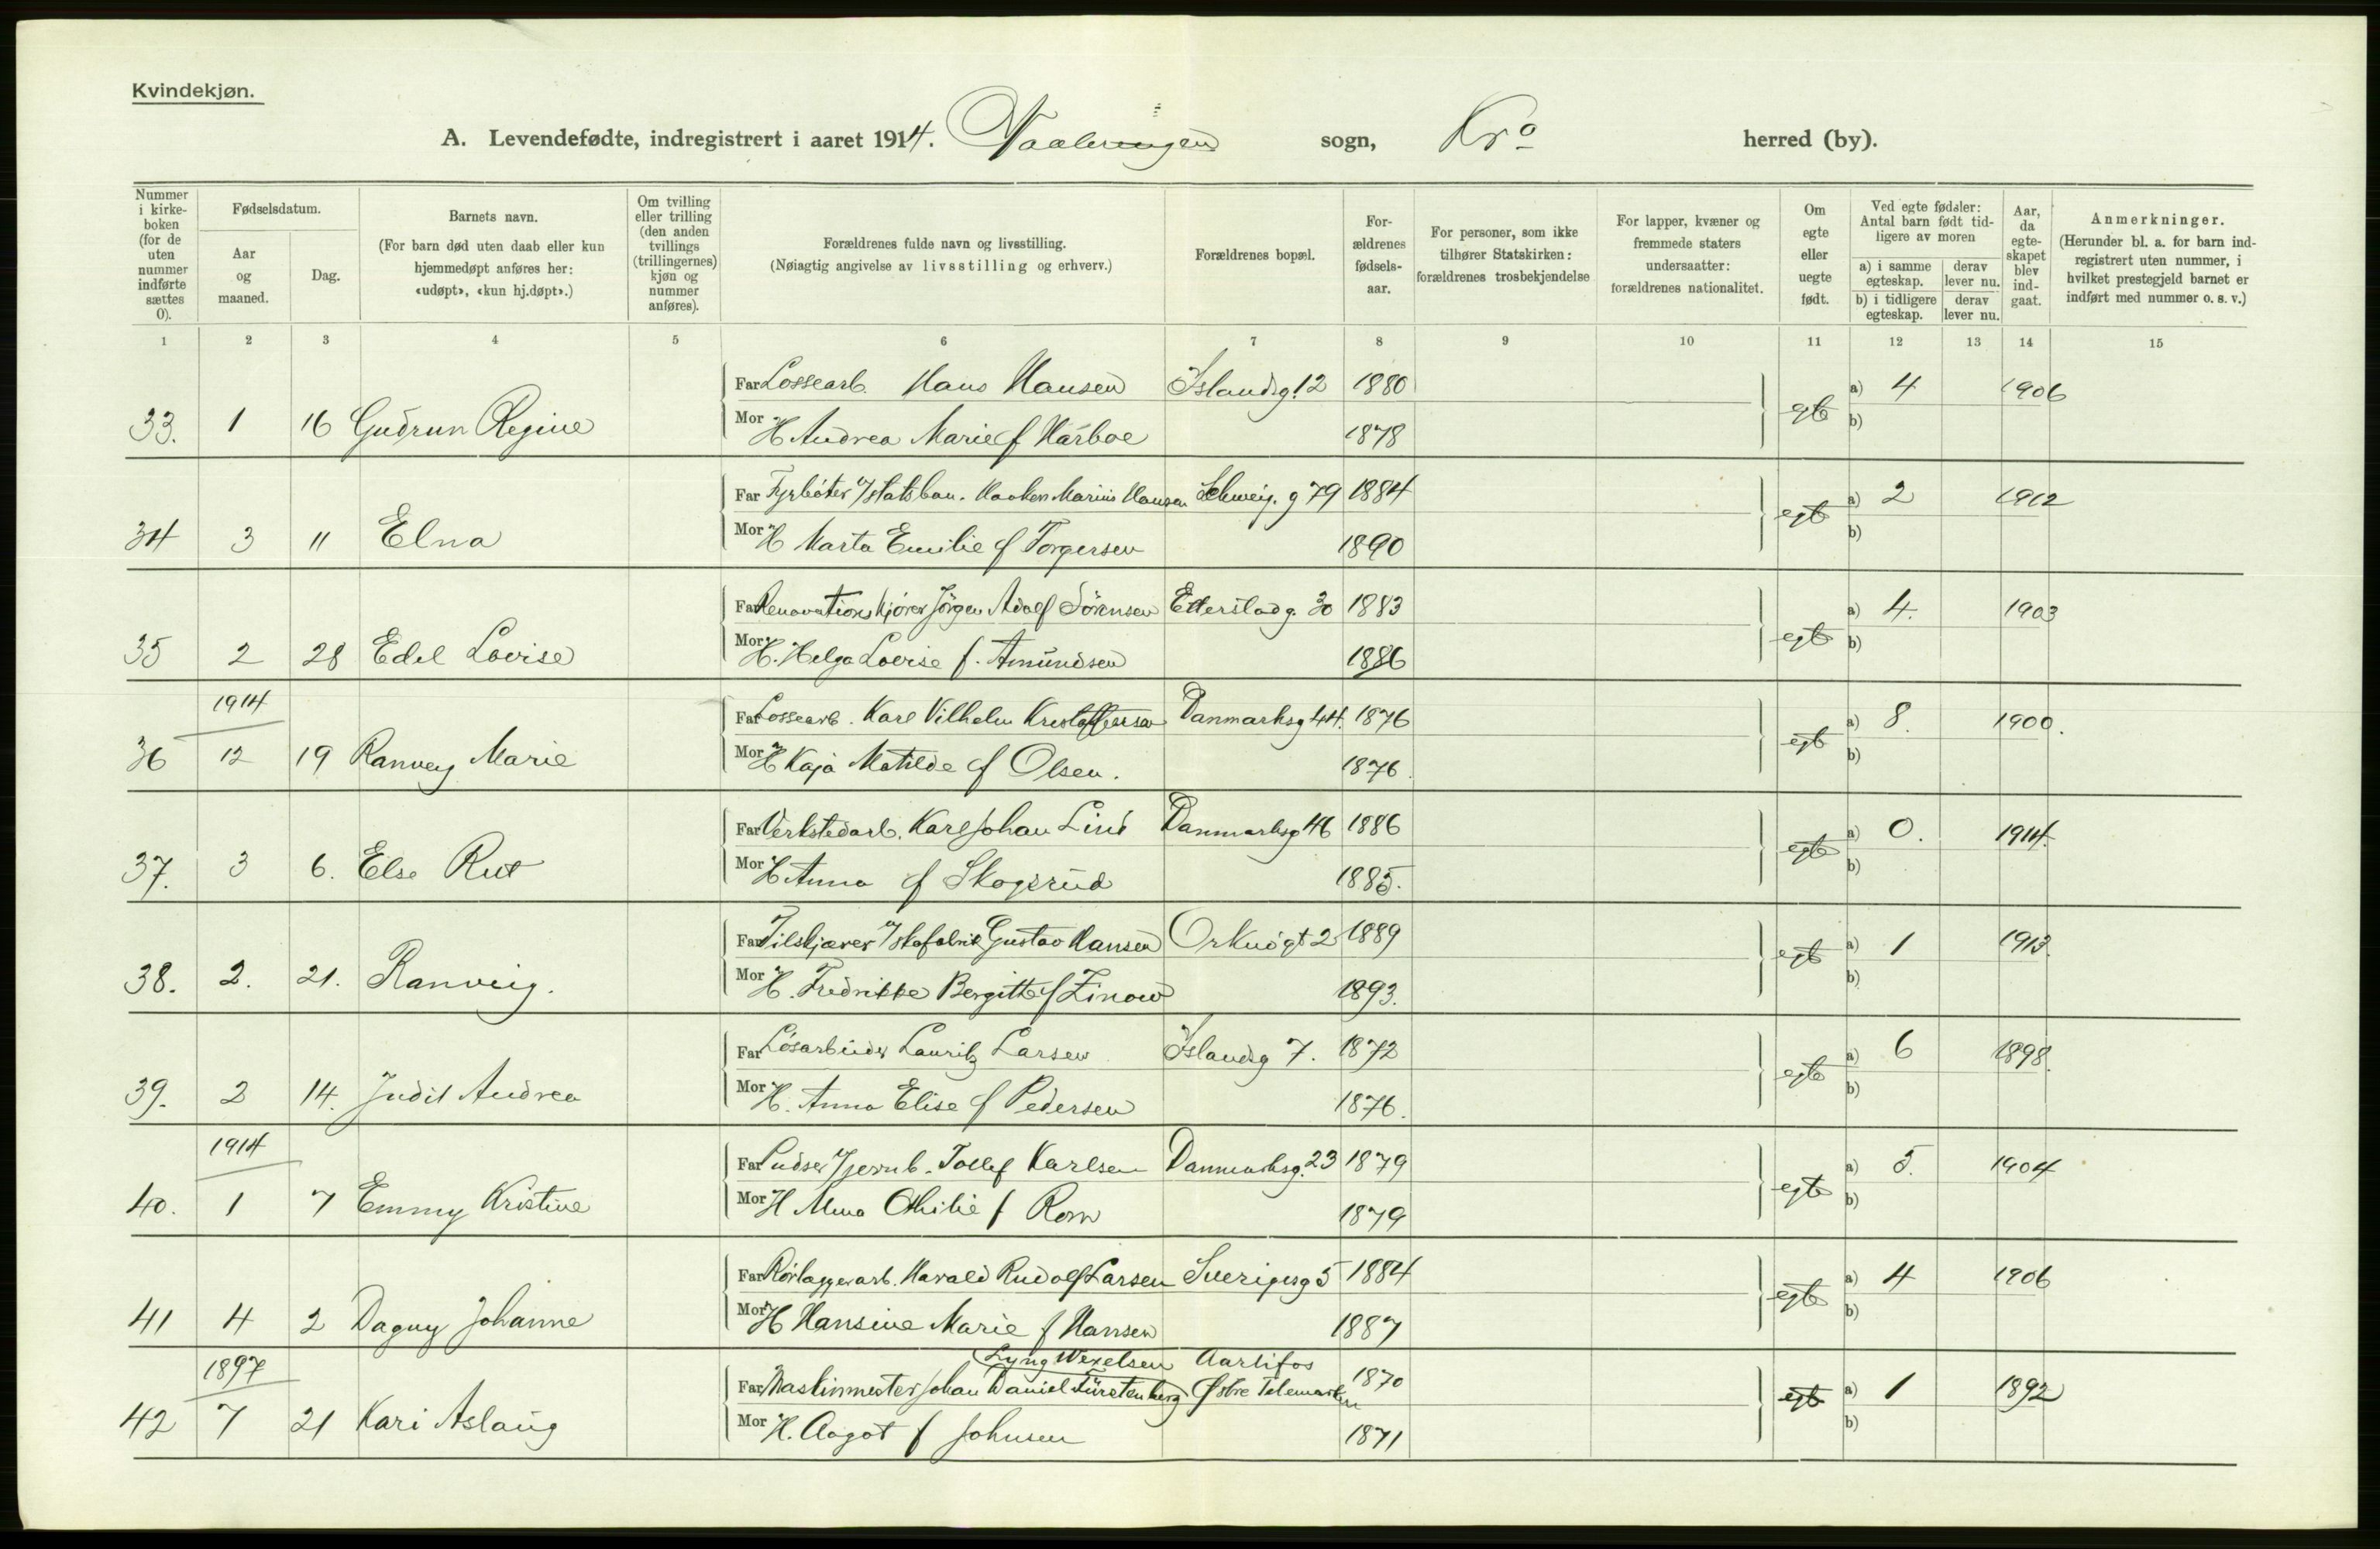 Kvindekjøn.
A. Levendefødte, indregistrert i aaret 1914. Vaalerengen sogn, Kra herred (by).
Nummer i kirke-boken (for de uten nummer indførte sættes 0).
Fødselsdatum.
Aar og maaned.
Dag.
Barnets navn.
(For barn død uten daab eller kun hjemmedøpt anføres her: «udøpt», «kun hj.døpt».)
Om tvilling eller trilling (den anden tvillings (trillingernes) kjøn og nummer anføres).
Forældrenes fulde navn og livsstilling.
(Nøiagtig angivelse av livsstilling og erhverv.)
Forældrenes bopæl.
For-ældrenes fødsels-aar.
For personer, som ikke tilhører Statskirken: forældrenes trosbekjendelse
For lapper, kvæner og fremmede staters undersaatter: forældrenes nationalitet.
Om egte eller uegte født.
Ved egte fødsler: Antal barn født tid-ligere av moren
a) i samme egteskap. derav lever nu.
b) i tidligere egteskap. derav lever nu.
Aar, da egte-skapet blev ind-gaat.
Anmerkninger.
(Herunder bl. a. for barn ind-registrert uten nummer, i hvilket prestegjeld barnet er indført med nummer o. s. v.)
1 2 3 4 5 6 7 8 9 10 11 12 13 14 15
Far Lossearb. Hans Hansen Islandsg. 12 1880 a) 4 1906
33. 1 16 Gudrun Regine Mor H Andrea Marie f Harboe 1878 egte b)
Far Fyrbøter v/statsban. Haaken Marius Hansen Schweig. g 79 1884 a) 2 1912
34 3 11 Elna Mor H Marta Emilie f Torgersen 1890 egte b)
Far Renovationskjører Jörgen Adolf Sörensen Etterstadg. 30 1883 a) 4. 1903
35 2 28 Edel Lovise Mor H. Helga Lovise f. Amundsen 1886 egte b)
1914
Far Lossearb. Karl Vilhelm Kristoffersen Danmarksg 44. 1876 a) 8. 1900.
36 12 19 Ranveig Marie Mor H Kaja Matilde f Olsen. 1876. egte b)
Far Verkstedarb. Karl Johan Lind Danmarksg 46 1886 a) 0. 1914.
37. 3 6. Else Rut Mor H Anna f Skogsrud 1885. egte b)
Far Tilskjærer v/skofabrik Gustav Hansen Orknögt 2 1889 a) 1 1913.
38. 2. 21. Ranveig. Mor H. Fredrikke Bergitte f Zinow 1893. egte b)
Far Lösarbeider Lauritz Larsen Islandsg 7. 1872 a) 6 1898.
39. 2 14. Judit Andrea Mor H. Anna Elise f Pedersen 1876. egte b)
1914
Far Pudser v/jernb. Tollef Karlsen Danmarksg. 23 1879 a) 5. 1904
40. 1 7 Emmy Kristine Mor H Othilie f 1879 egte b)
Far Rörlæggerarb. Harald Rudolf Larsen Sverigesg 5 1884 a) 4 1906
41 4 2 Dagny Johanne Mor H Hansine Marie f Hansen 1887 egte b)
1897 Lyng Wexelsen Aarlifos
Far Maskinmester Johan Daniel Fürstenberg Østre Telemarken 1870 a) 1 1892
42 7 21 Kari Aslaug Mor H. Aagot f Johnsen 1871 egte b)